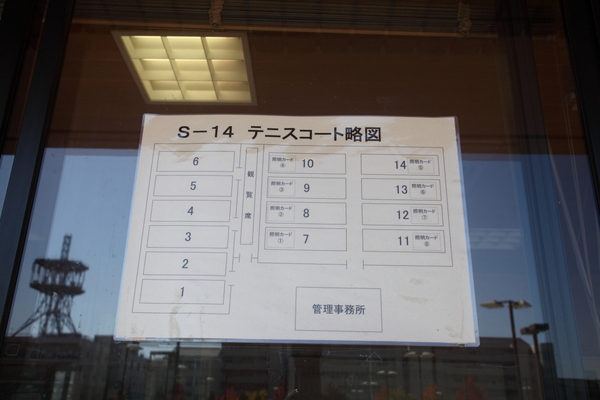 S-14 テニスコート略図
6
5
4
3
2
1
観覧席
照明カード
④
10
照明カード
③
9
照明カード
②
8
照明カード
①
7
14
照明カード
⑤
13
照明カード
⑥
12
照明カード
⑦
11
照明カード
⑧
管理事務所